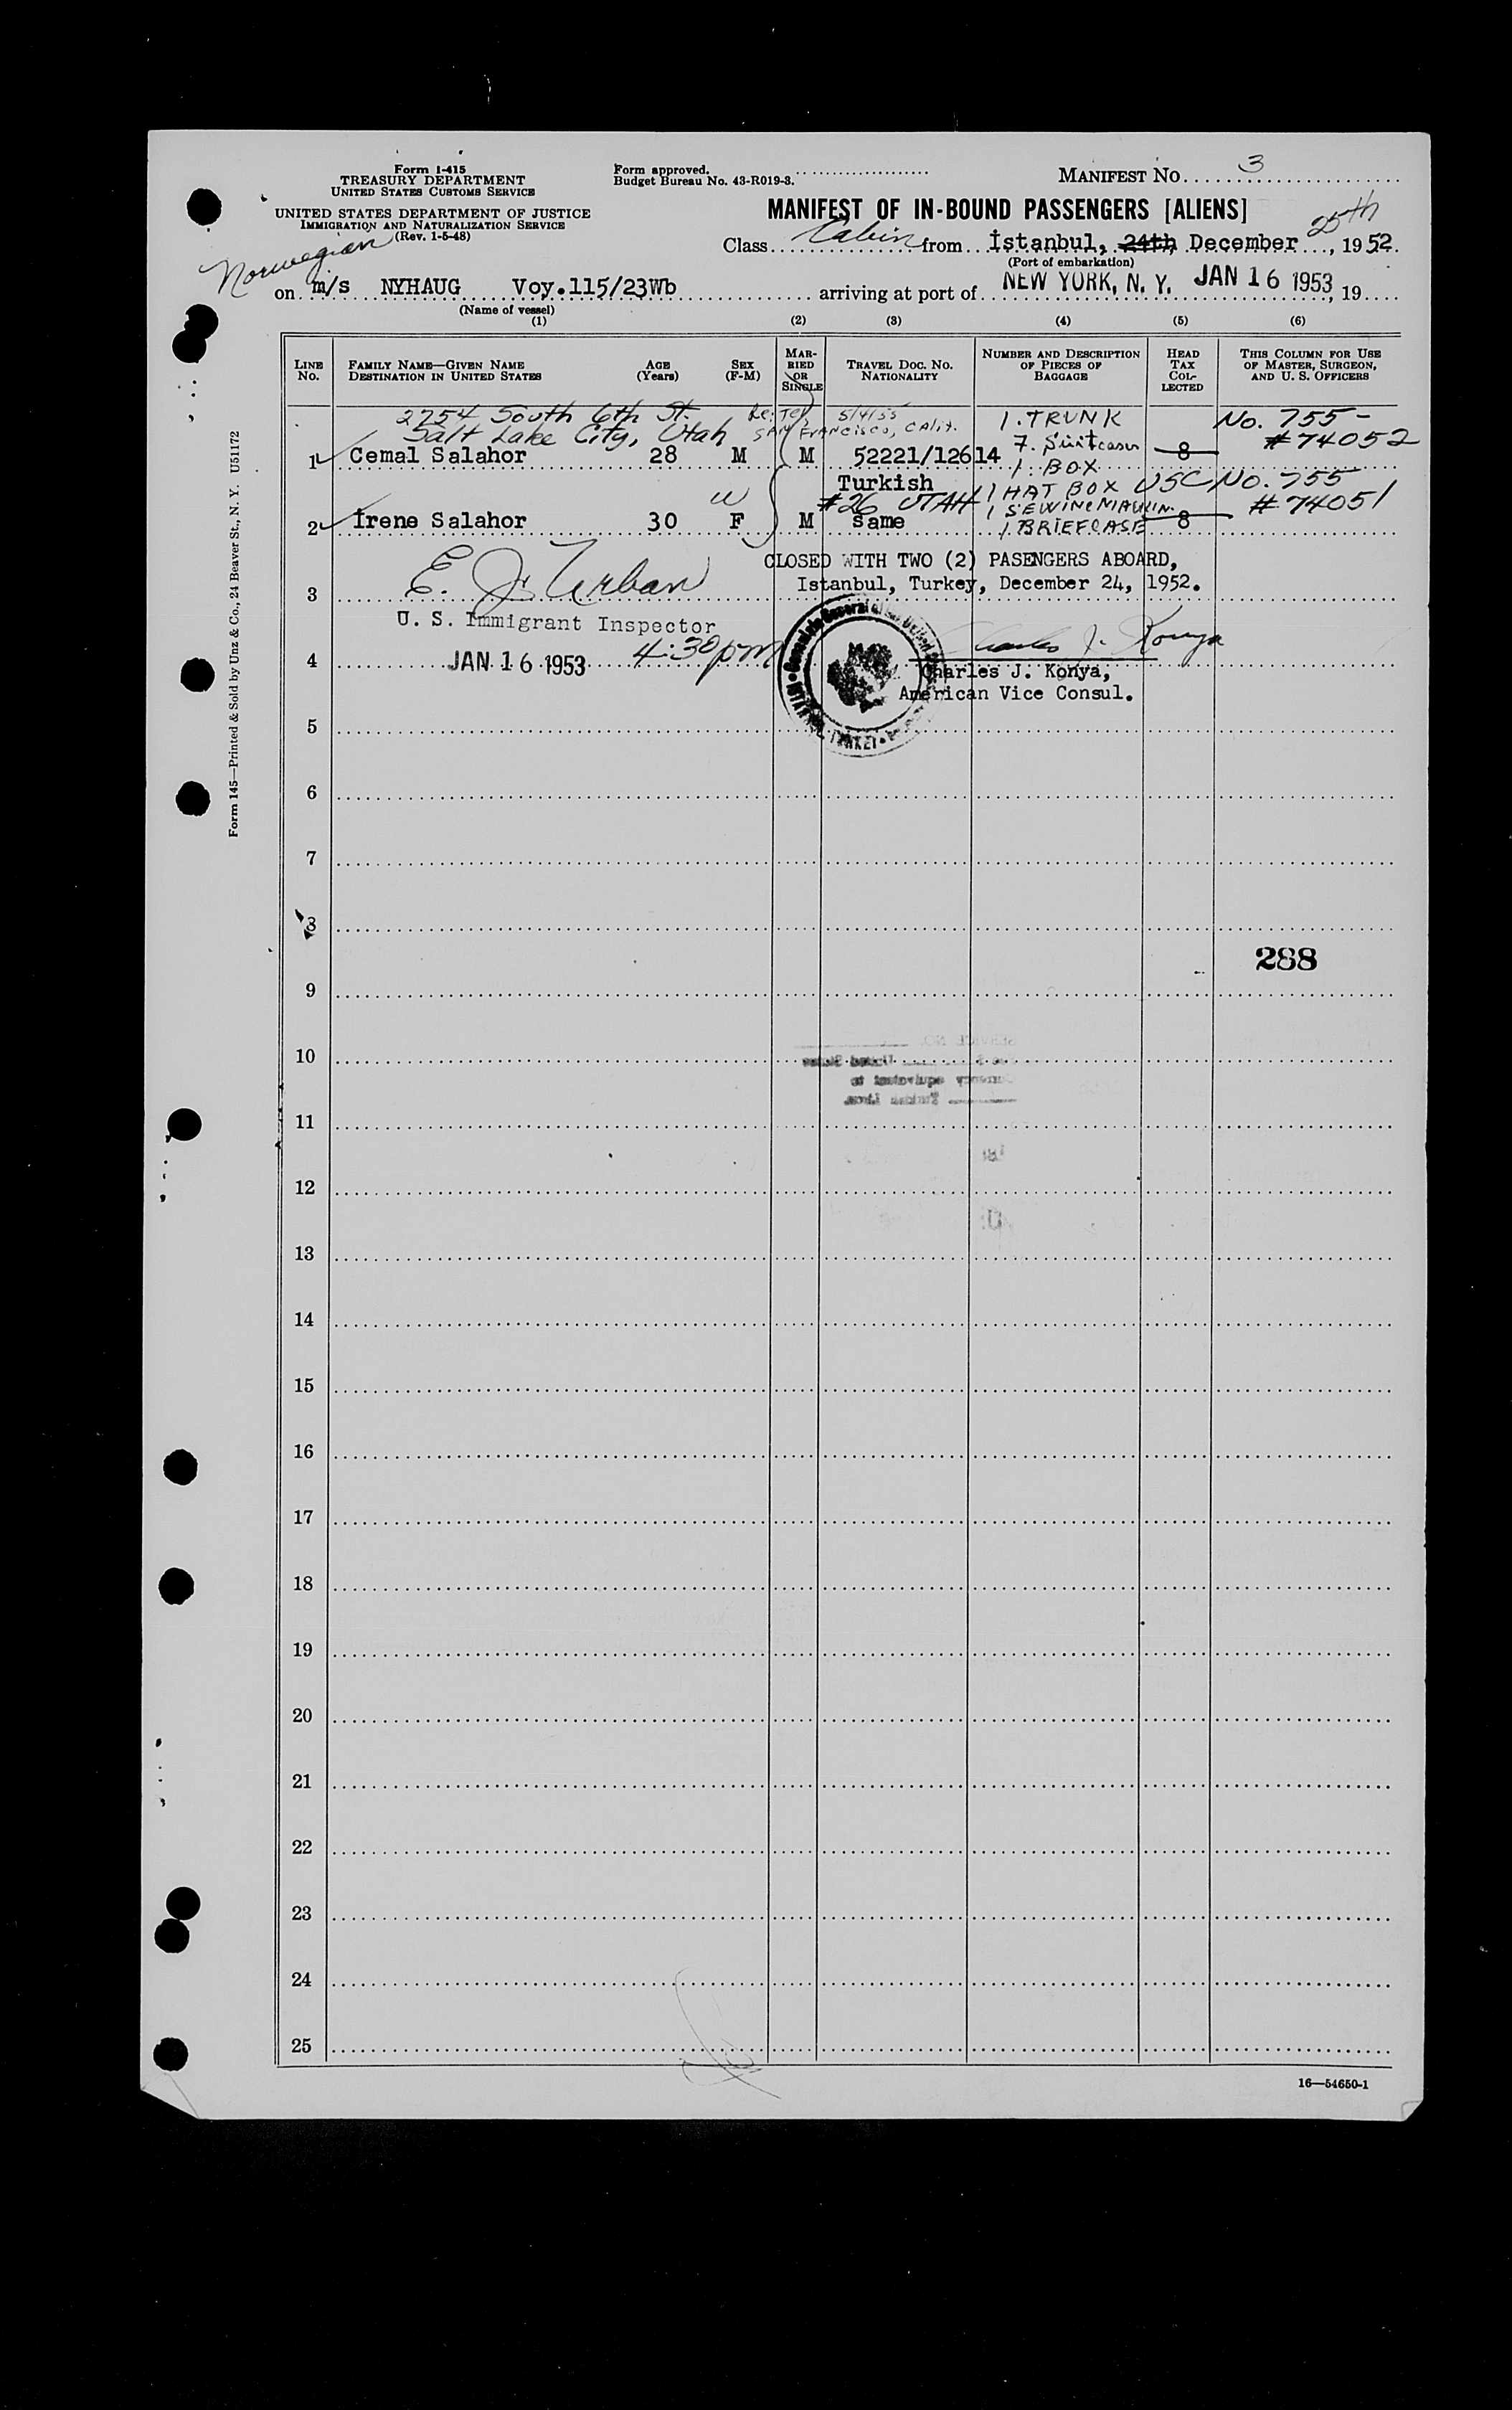 Form I-415
TREASURY DEPARTMENT
UNITED STATES CUSTOMS SERVICE
UNITED STATES DEPARTMENT OF JUSTICE
IMMIGRATION AND NATURALIZATION SERVICE
(Rev. 1-5-48)
Form approved.
Budget Bureau No. 43-R019-3.
MANIFEST NO. 3
MANIFEST OF IN-BOUND PASSENGERS [ALIENS]
25th
Class Cabin from İstanbul, 24th December, 1952.
(Port of embarkation)
Norwegian
on m/s NYHAUG Voy.115/23Wb arriving at port of NEW YORK, N. Y. JAN 16 1953, 19
(Name of vessel)
(1) (2) (3) (4) (5) (6)
LINE NO.
FAMILY NAME—GIVEN NAME
DESTINATION IN UNITED STATES
AGE (Years)
SEX (F-M)
MARRIED OR SINGLE
TRAVEL DOC. NO.
NATIONALITY
NUMBER AND DESCRIPTION OF PIECES OF BAGGAGE
HEAD TAX COLLECTED
THIS COLUMN FOR USE OF MASTER, SURGEON, AND U. S. OFFICERS
2754 South 6th St. 5/4/55 1. TRUNK No. 755-
Salt Lake City, Utah SAN FRANCISCO, CALIF. 7. Suitcases #74052
1 Cemal Salahor 28 M M 52221/12614 1. BOX 8
Turkish 1 HAT BOX USC No. 755
#26 UTAH 1 SEWING #74051
2 İrene Salahor 30 F M same 1. BRIEFCASE 8
CLOSED WITH TWO (2) PASENGERS ABOARD,
Istanbul, Turkey, December 24, 1952.
3 E. J. Urban
U. S. Immigrant Inspector
4 JAN 16 1953 4:30 pm
Charles J. Konya
Charles J. Konya,
American Vice Consul.
5
6
7
8
288
9
10
11
12
13
14
15
16
17
18
19
20
21
22
23
24
25
16—54650-1
Form 145—Printed & Sold by Unz & Co., 24 Beaver St., N. Y. U51172